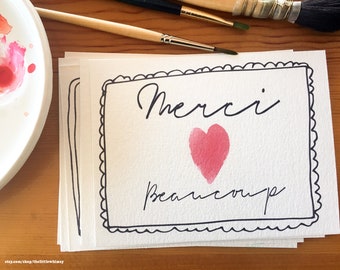 Merci
Beaucoup
etsy.com/shop/thelittlewhimsy